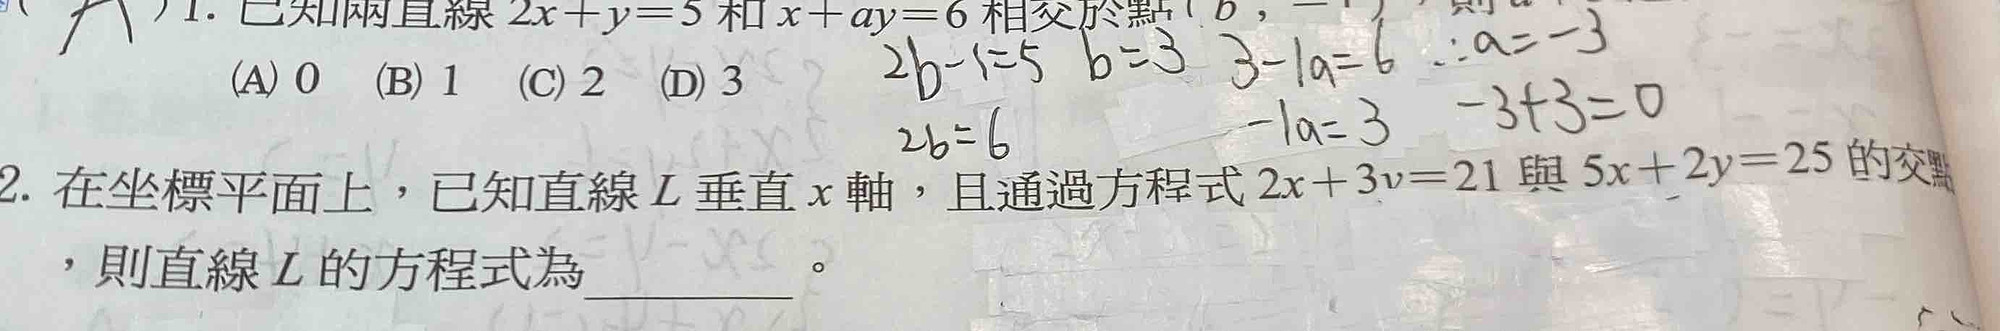 1. 已知兩直線 2x+y=5 和 x+ay=6 相交於點(b,
(A) 0 (B) 1 (C) 2 (D) 3
2b-1=5 b=3 3-1a=6 ∴a=-3
2b=6 -1a=3 -3+3=0
2. 在坐標平面上，已知直線 L 垂直 x 軸，且通過方程式 2x+3y=21 與 5x+2y=25 的交點
，則直線 L 的方程式為________。